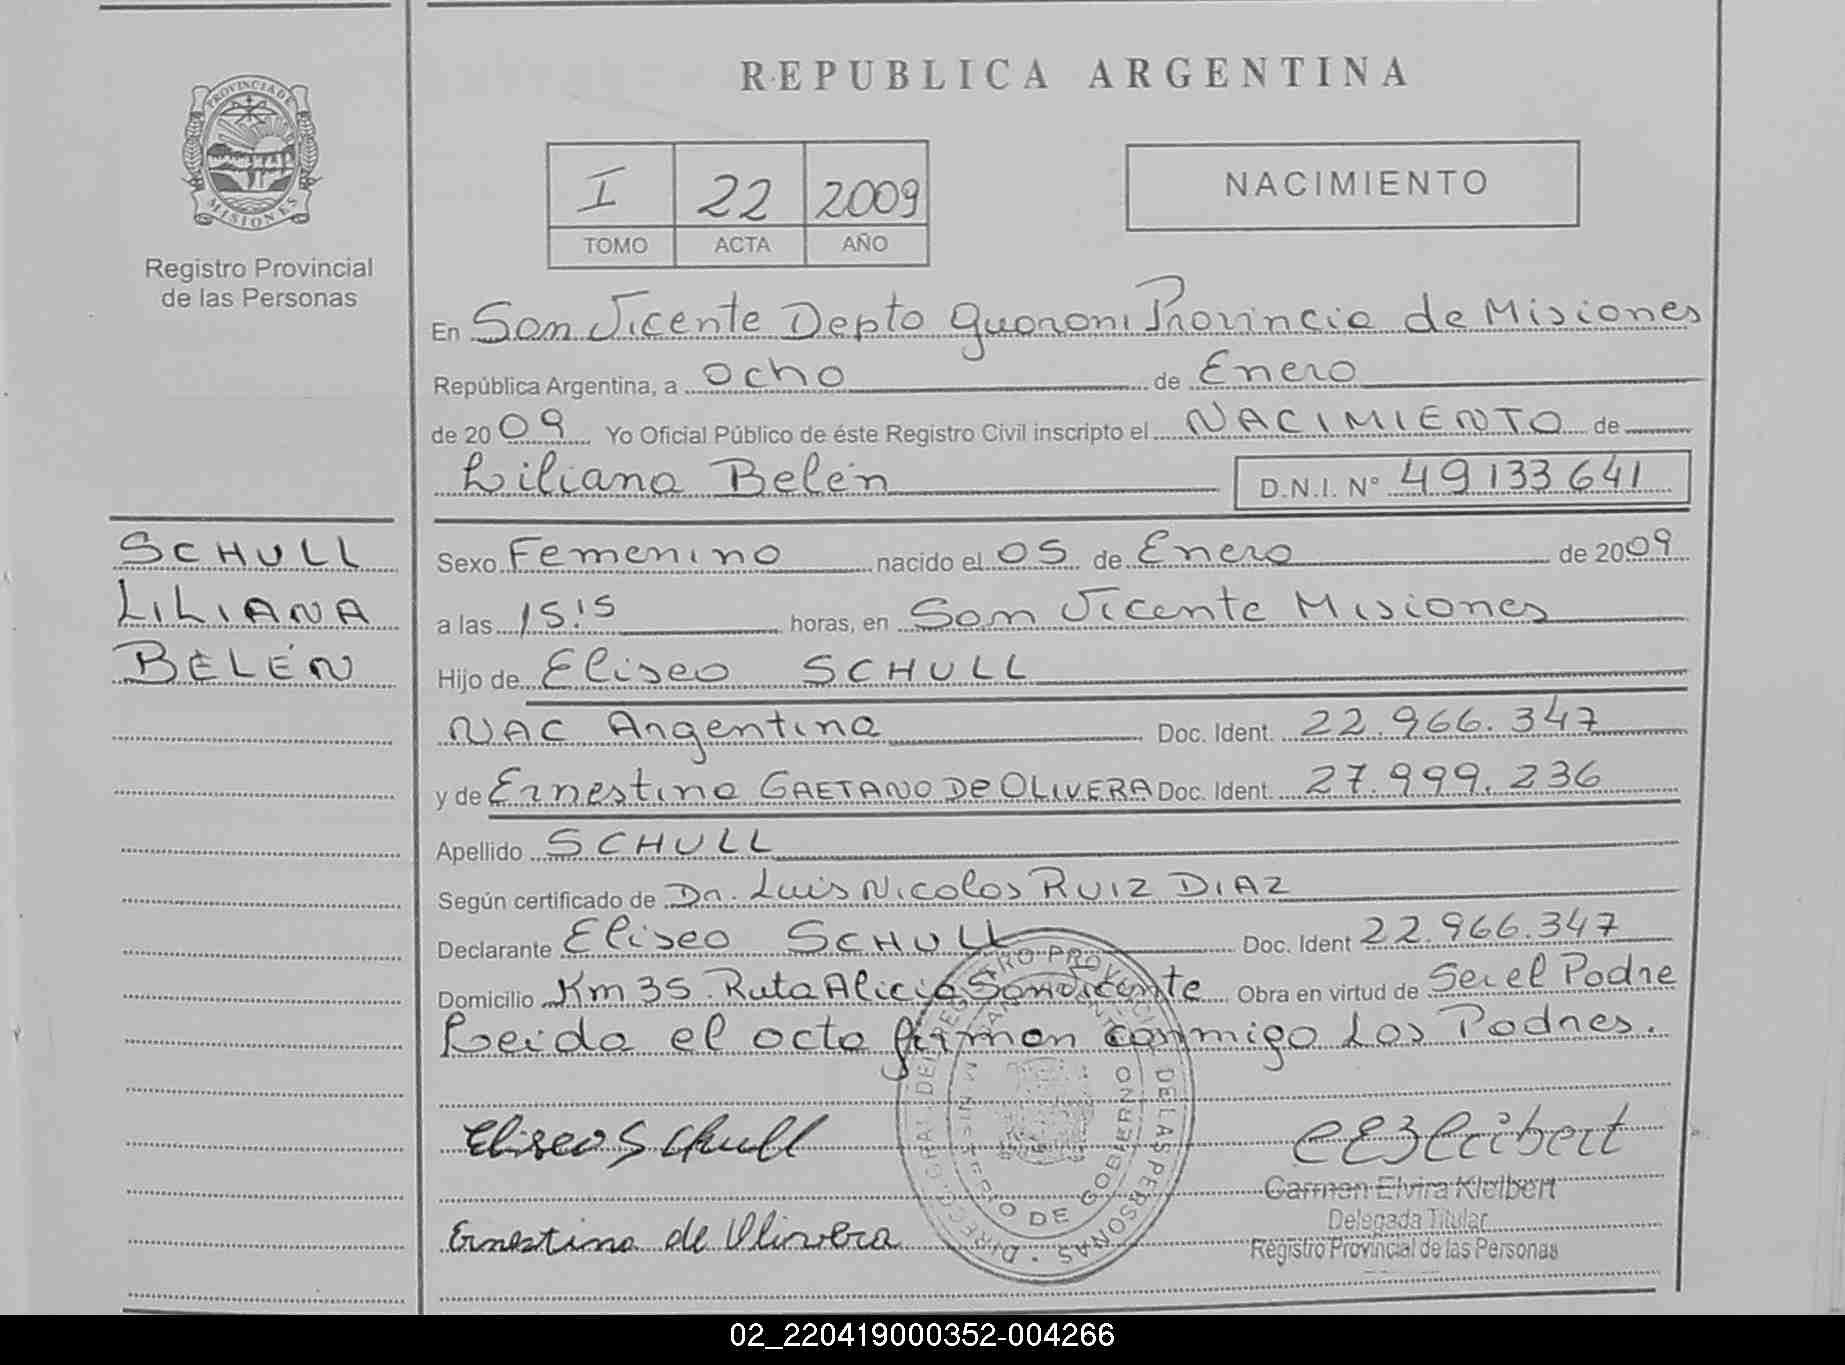 REPUBLICA ARGENTINA
PROVINCIA DE
MISIONES
Registro Provincial
de las Personas
I 22 2009
TOMO ACTA AÑO
NACIMIENTO
En San Vicente Depto Guarani Provincia de Misiones
República Argentina, a ocho de Enero
de 2009 Yo Oficial Público de éste Registro Civil inscripto el NACIMIENTO de
Liliana Belén D.N.I. N° 49133641
SCHULL
LILIANA
BELÉN
Sexo Femenino nacido el 05 de Enero de 2009
a las 15:15 horas, en San Vicente Misiones
Hijo de Eliseo SCHULL
NAC Argentina Doc. Ident. 22.966.347
y de Ernestina GAETANO De OLIVERA Doc. Ident. 27.999.236
Apellido SCHULL
Según certificado de Dr. Luis Nicolas RUIZ DIAZ
Declarante Eliseo SCHULL Doc. Ident 22.966.347
Domicilio Km 35 Ruta Alicia San Vicente Obra en virtud de Ser el Padre
Leida el acta firman conmigo Los Padres.
Eliseo Schull
Ernestina de Olivera
DE GOBIERNO
DE LAS PERSONAS
Carmen Elvira Kleibert
Delegada Titular
Registro Provincial de las Personas
02_220419000352-004266